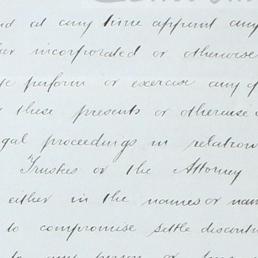 at any time appoint any
incorporated or otherwise
perform or exercise any
these presents or otherwise
proceedings in
Trustees or the Attorney
either in the names or
to compromise settle